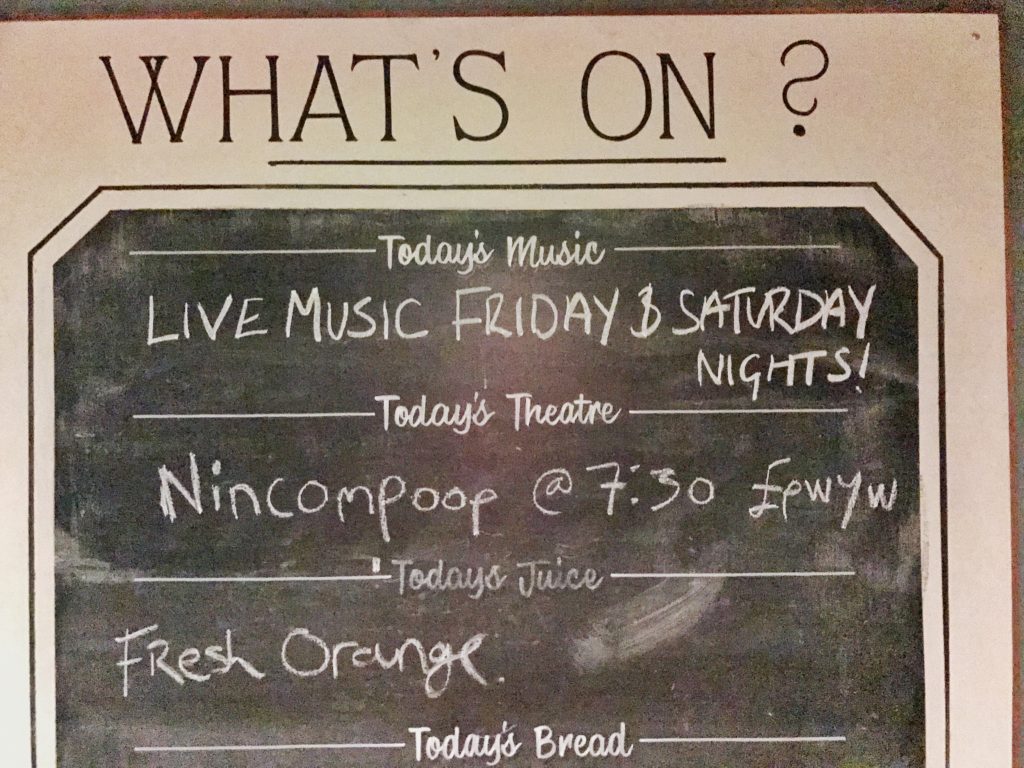 WHAT'S ON ?
Today's Music
LIVE MUSIC FRIDAY & SATURDAY
NIGHTS!
Today's Theatre
Nincompoop @ 7:30 £pwyw
Today's Juice
Fresh Orange.
Today's Bread